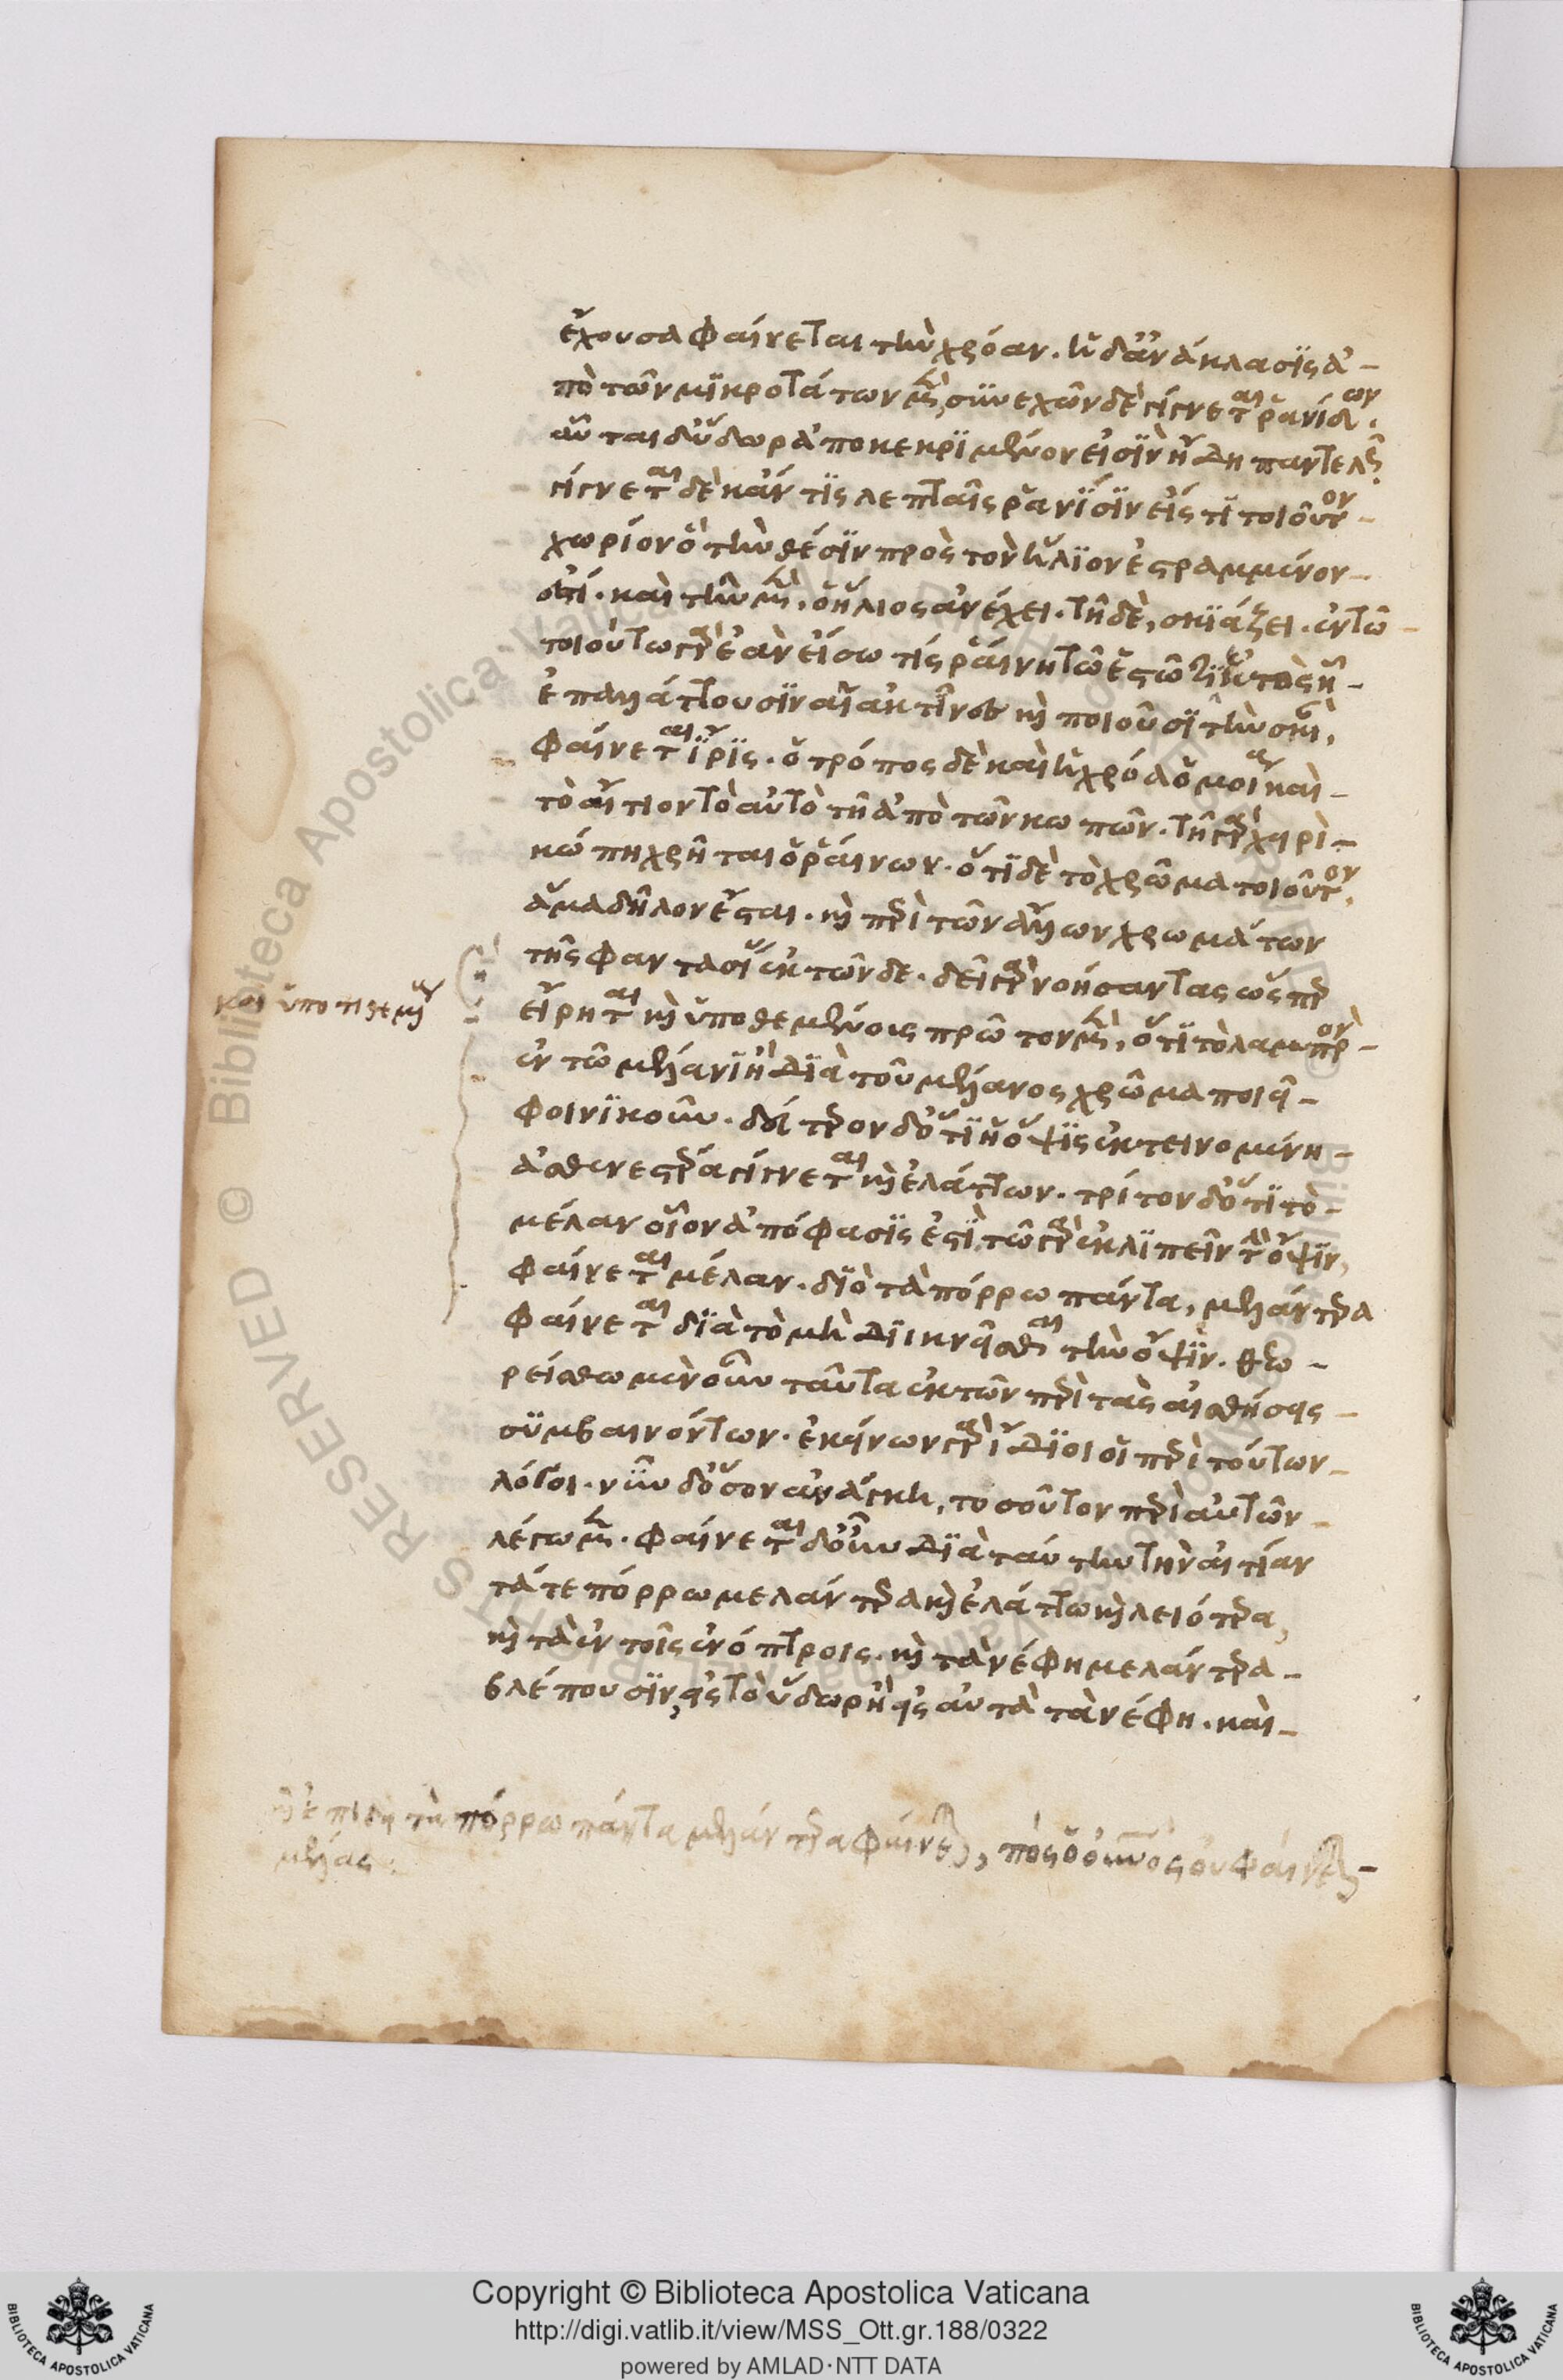 ἔχουσα φαίνεται τὴν χρόαν. ἡ δ' ἀνάκλασις ἀ-
πὸ τῶν μικροτάτων μὲν, συνεχῶν δὲ γίγνεται ῥανίδων.
αὗται δ' ὕδωρ ἀποκεκριμένον εἰσὶν ἤδη παντελῶς.
γίγνεται δὲ κἄν τις λεπταῖς ῥανίσιν εἴς τι τοιοῦτον
χωρίον ὃ τὴν θέσιν πρὸς τὸν ἥλιον ἐστραμμένον
ἐστί. καὶ τῇ μὲν, ὁ ἥλιος ἀνέχει. τῇ δὲ, σκιάζει. ἐν τῷ
τοιούτω γὰρ ἐὰν εἴσω τίς ῥαίνη τῷ ἑστῶτι ἐκτὸς ᾗ
ἐπαλλάττουσιν αἱ ἀκτῖνες καὶ ποιοῦσι τὴν σκιὰν,
φαίνεται ἶρις. ὁ τρόπος δὲ καὶ ἡ χρόα ὅμοια καὶ
τὸ αἴτιον τὸ αὐτὸ τῇ ἀπὸ τῶν κωπῶν. τῇ γὰρ χειρὶ
κώπη χρῆται ὁ ῥαίνων. ὅτι δὲ τὸ χρῶμα τοιοῦτον,
ἅμα δῆλον ἔσται. καὶ περὶ τῶν ἄλλων χρωμάτων
τῆς φαντασίας ἐκ τῶνδε. δεῖ γὰρ νοήσαντας ὥσπερ
εἴρηται καὶ ὑποθεμένοις πρῶτον μὲν, ὅτι τὸ λαμπρὸν
ἐν τῷ μέλανι ἢ διὰ τοῦ μέλανος χρῶμα ποιεῖ
φοινικοῦν. δεύτερον δ' ὅτι ἡ ὄψις ἐκτεινομένη
ἀσθενεστέρα γίγνεται καὶ ἐλάττων. τρίτον δ' ὅτι τὸ
μέλαν οἷον ἀπόφασις ἐστὶ τῷ γὰρ ἐκλιπεῖν τὴν ὄψιν,
φαίνεται μέλαν. διὸ τὰ πόρρω πάντα, μελάντερα
φαίνεται διὰ τὸ μὴ διικνεῖσθαι τὴν ὄψιν. θεω-
ρείσθω μὲν οὖν ταῦτα ἐκ τῶν περὶ τὰς αἰσθήσεις
συμβαινόντων. ἐκείνων γὰρ ἴδιοι οἱ περὶ τούτων
λόγοι. νῦν δ' ὅσον ἀνάγκη, τοσοῦτον περὶ αὐτῶν
λέγωμεν. φαίνεται δ' οὖν διὰ ταύτην τὴν αἰτίαν
τά τε πόρρω μελάντερα καὶ ἐλάττω καὶ λειότερα,
καὶ τὰ ἐν τοῖς ἐνόπτροις. καὶ τὰ νέφη μελάντερα
βλέπουσιν, εἰς τὸ ὕδωρ ἢ εἰς αὐτὰ τὰ νέφη. καὶ
καὶ ὑποτιθεμένους
καὶ ἐπειδὴ τὰ πόρρω πάντα μελάντερα φαίνεται, πῶς ὁ οὐρανὸς οὐ φαίνεται
μέλας:
Copyright © Biblioteca Apostolica Vaticana
http://digi.vatlib.it/view/MSS_Ott.gr.188/0322
powered by AMLAD·NTT DATA